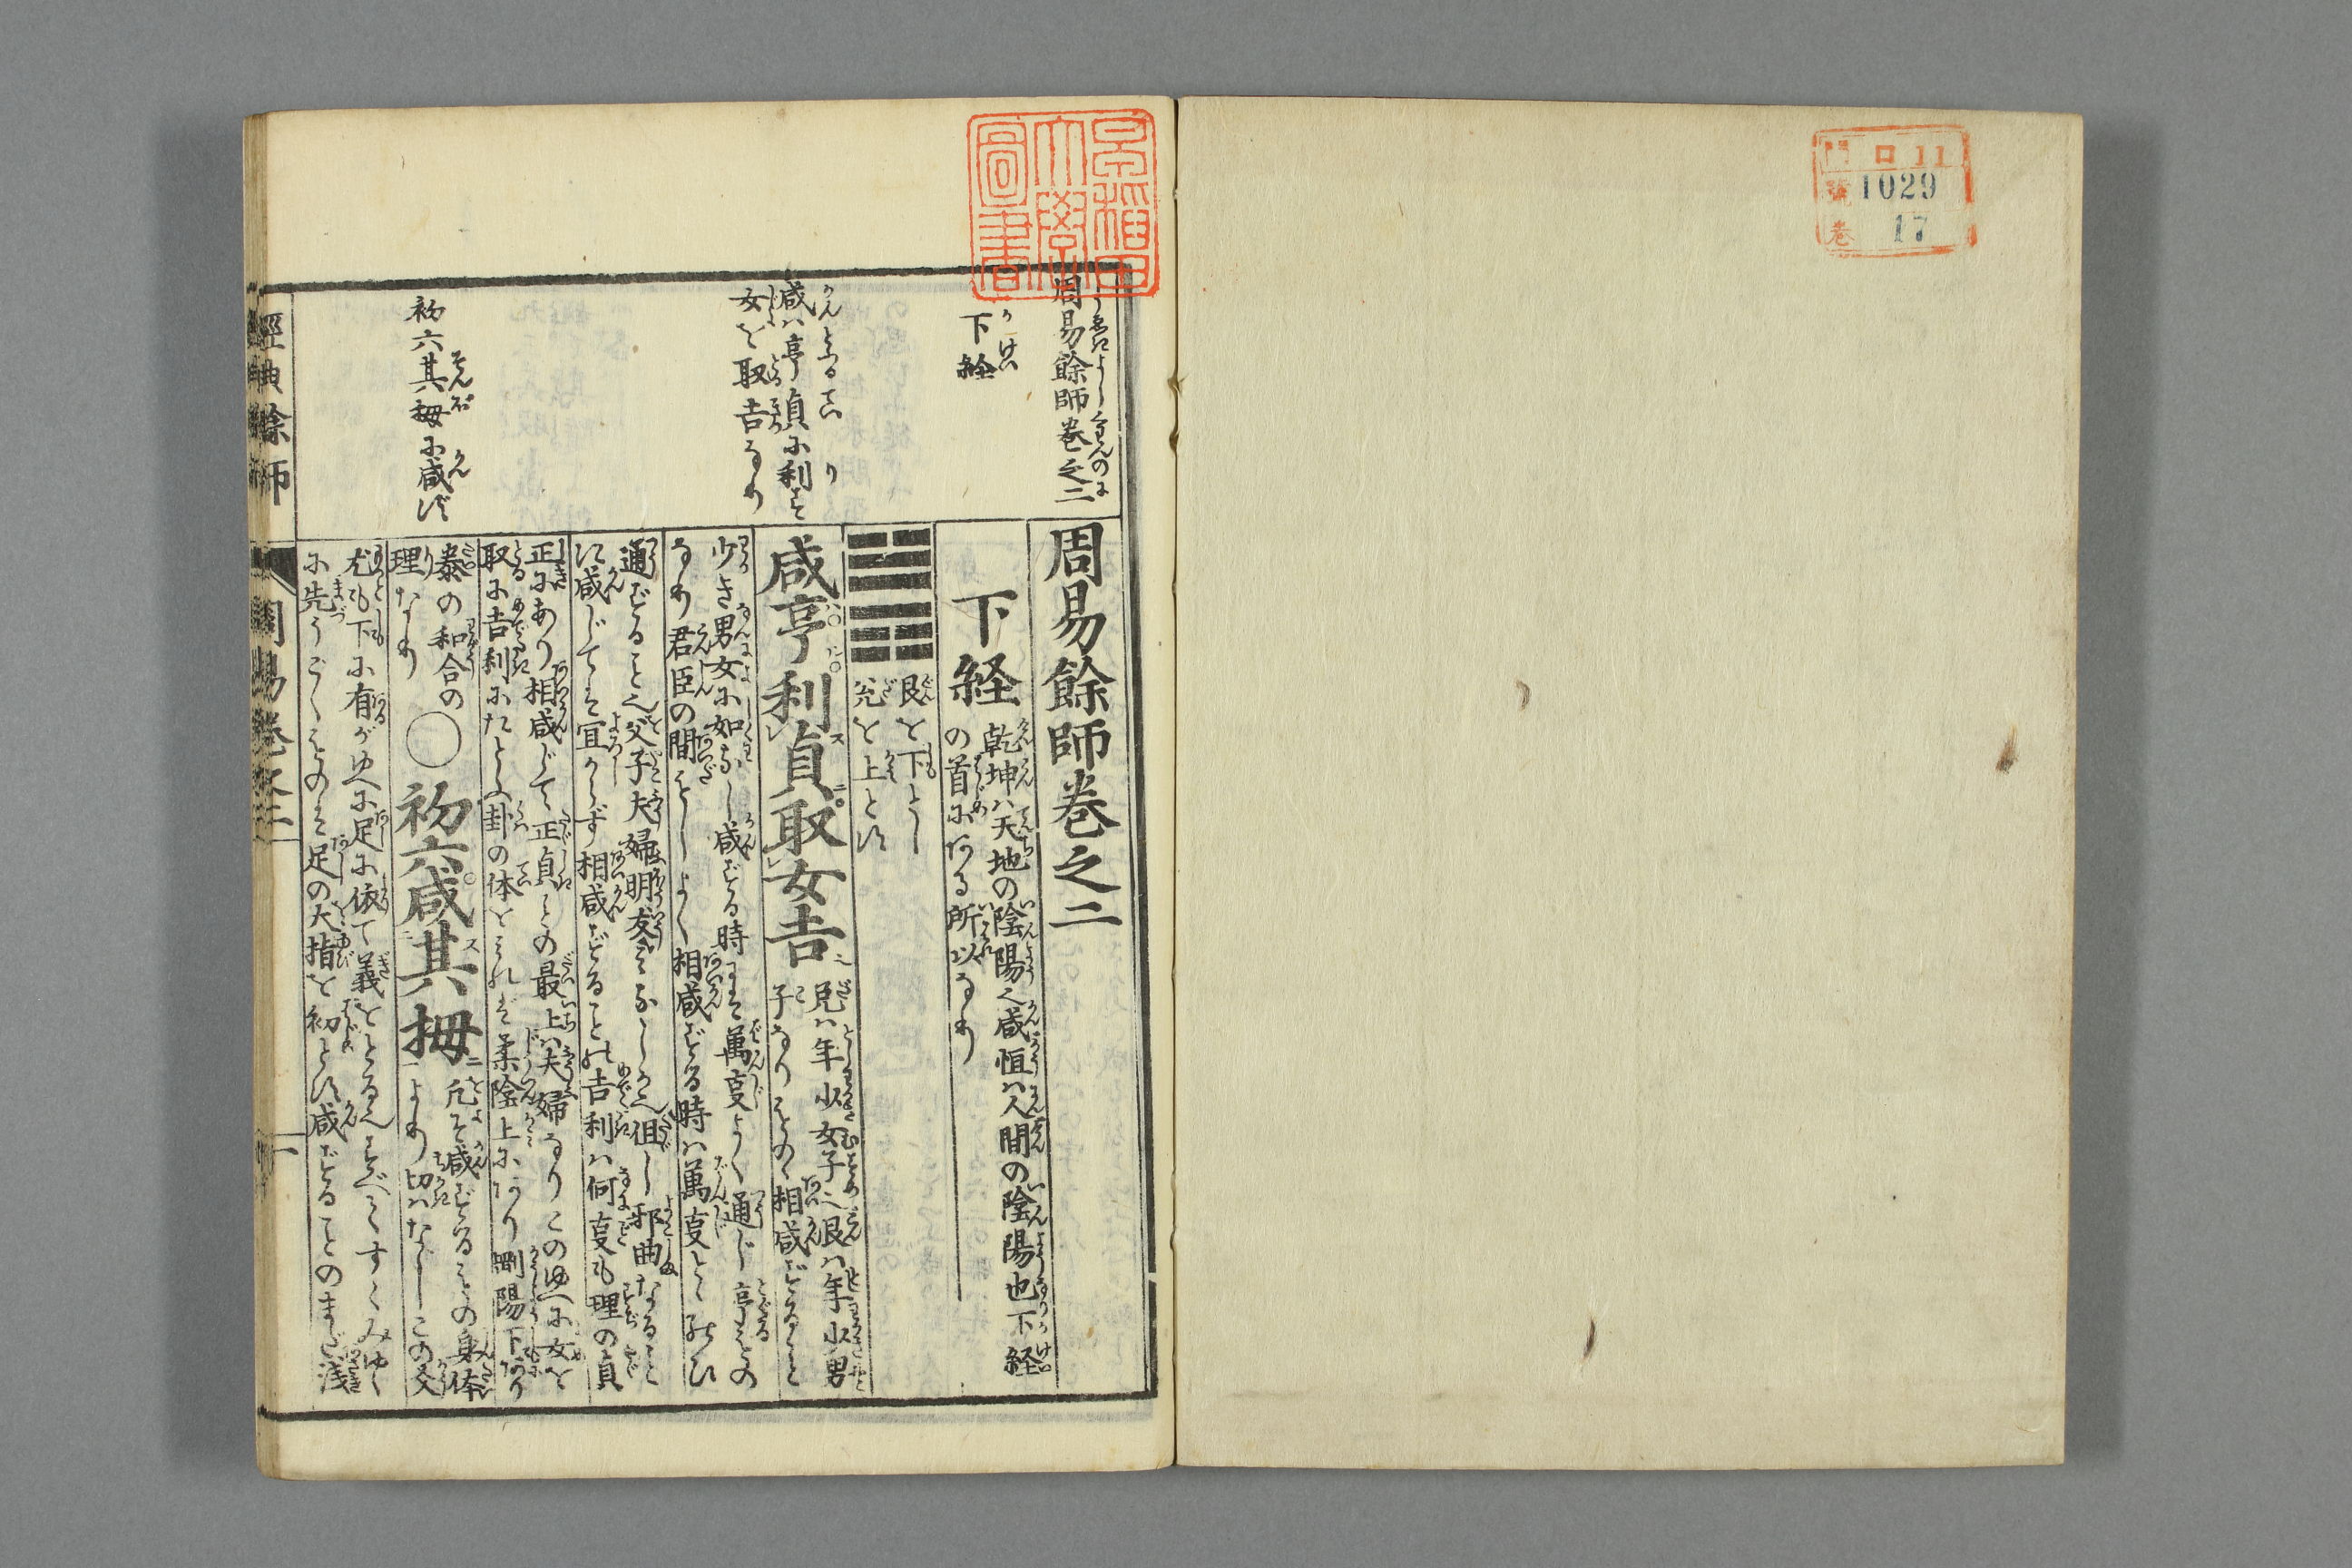 門 ロ11
號 1029
巻 17
早稲田
大學
圖書
周易餘師巻之二
下経
咸ハ亨貞に利す
女を取吉なり
初六其拇に咸ず
周易餘師巻之二
下経
乾坤ハ天地の陰陽也咸恒ハ人間の陰陽也下経
の首にある所以なり
艮を下とし
兌を上とす
咸亨利貞取女吉
兌ハ年少女子也艮ハ年少男
子なりその相咸ずること
少き男女に如なし咸ずる時ハ萬事よく通じ亨その
なり君臣の間をしよく相咸ずる時ハ萬事とゝのひ
通ずること也父子夫婦朋友みなしかり但し邪曲なること
に咸じてハ宜からず相咸ずることの吉利ハ何事も理の貞
正にあり相咸じて正貞ことの最上ハ夫婦なりこのゆへに女を
取に吉利にたとふ卦の体をみれば柔陰上にあり剛陽下にあり
泰の和合の
理なり
○初六咸其拇
凡そ咸ずることの身体
より切ハなしこの爻
尤も下に有がゆへに足に依て義をとるなりすべてすゝみゆく
に先うごくものハ足の大指を初とす咸ずることのまだ浅
經典餘師
周易巻之二
一